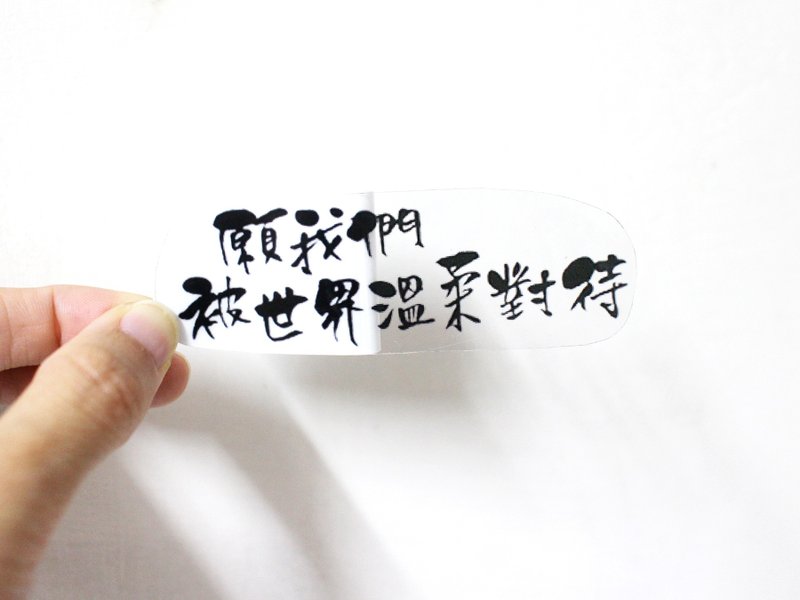 願我們
被世界溫柔對待